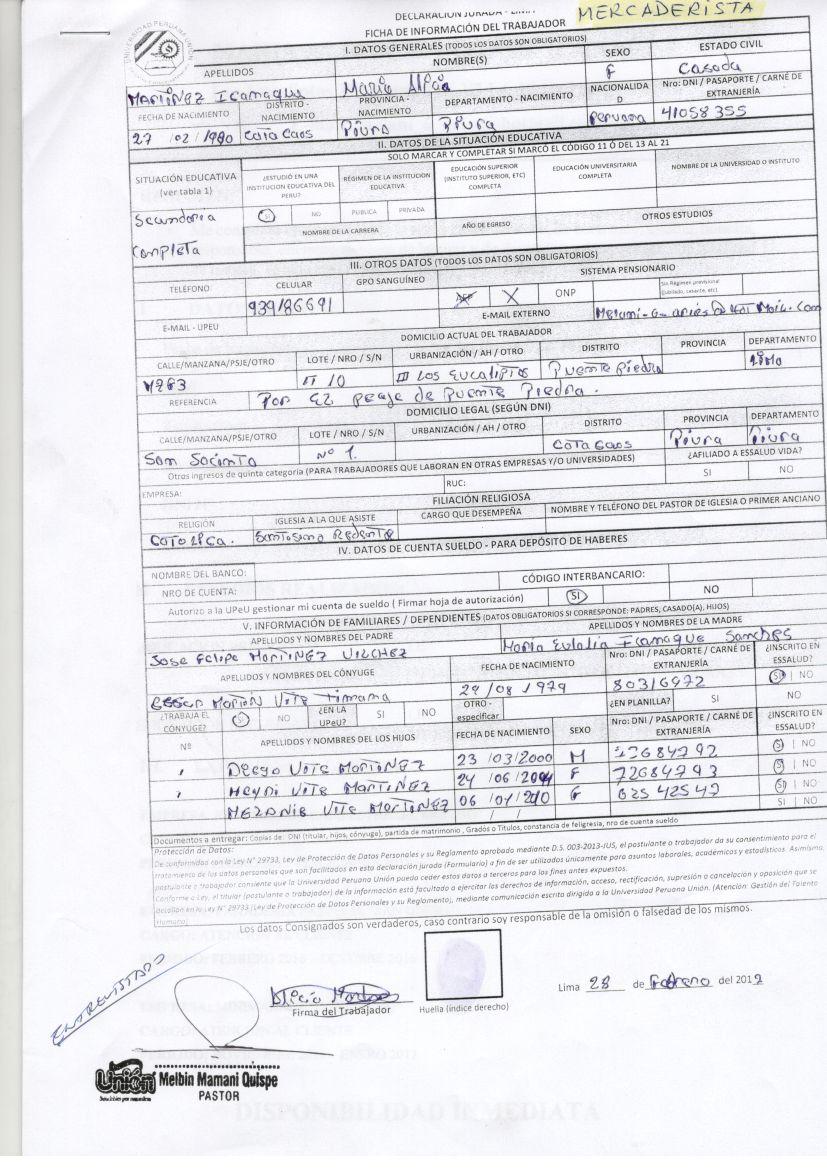 DECLARACIÓN JURADA - LIMA
MERCADERISTA
FICHA DE INFORMACIÓN DEL TRABAJADOR
UNIVERSIDAD PERUANA UNIÓN
I. DATOS GENERALES (TODOS LOS DATOS SON OBLIGATORIOS)
APELLIDOS NOMBRE(S) SEXO ESTADO CIVIL
MARTINEZ Icamaque Maria F Casada
FECHA DE NACIMIENTO DISTRITO - NACIMIENTO PROVINCIA - NACIMIENTO DEPARTAMENTO - NACIMIENTO NACIONALIDAD Nro: DNI / PASAPORTE / CARNÉ DE EXTRANJERÍA
27 /02 / 1980 Cata Caos Piura Piura Peruana 41058355
II. DATOS DE LA SITUACIÓN EDUCATIVA
SOLO MARCAR Y COMPLETAR SI MARCÓ EL CÓDIGO 11 Ó DEL 13 AL 21
SITUACIÓN EDUCATIVA (ver tabla 1) ¿ESTUDIÓ EN UNA INSTITUCION EDUCATIVA DEL PERU? RÉGIMEN DE LA INSTITUCION EDUCATIVA EDUCACIÓN SUPERIOR (INSTITUTO SUPERIOR, ETC) COMPLETA EDUCACIÓN UNIVERSITARIA COMPLETA NOMBRE DE LA UNIVERSIDAD O INSTITUTO
Secundaria SI NO PÚBLICA PRIVADA
NOMBRE DE LA CARRERA AÑO DE EGRESO OTROS ESTUDIOS
Completa
III. OTROS DATOS (TODOS LOS DATOS SON OBLIGATORIOS)
TELÉFONO CELULAR GPO SANGUÍNEO SISTEMA PENSIONARIO
939186691 AFP X ONP Sin Régimen previsional (jubilado, cesante, etc)
E-MAIL - UPEU E-MAIL EXTERNO
DOMICILIO ACTUAL DEL TRABAJADOR
CALLE/MANZANA/PSJE/OTRO LOTE / NRO / S/N URBANIZACIÓN / AH / OTRO DISTRITO PROVINCIA DEPARTAMENTO
10 III Los Eucaliptos Puente Piedra Lima
REFERENCIA Por EL peaje de Puente Piedra.
DOMICILIO LEGAL (SEGÚN DNI)
CALLE/MANZANA/PSJE/OTRO LOTE / NRO / S/N URBANIZACIÓN / AH / OTRO DISTRITO PROVINCIA DEPARTAMENTO
San Jacinto Nº 1. Cata Caos Piura Piura
Otros ingresos de quinta categoría (PARA TRABAJADORES QUE LABORAN EN OTRAS EMPRESAS Y/O UNIVERSIDADES) ¿AFILIADO A ESSALUD VIDA?
EMPRESA: RUC: SI NO
FILIACIÓN RELIGIOSA
RELIGIÓN IGLESIA A LA QUE ASISTE CARGO QUE DESEMPEÑA NOMBRE Y TELÉFONO DEL PASTOR DE IGLESIA O PRIMER ANCIANO
Catolica. Santisimo Redentor
IV. DATOS DE CUENTA SUELDO - PARA DEPÓSITO DE HABERES
NOMBRE DEL BANCO: CÓDIGO INTERBANCARIO:
NRO DE CUENTA:
Autorizo a la UPeU gestionar mi cuenta de sueldo ( Firmar hoja de autorización) SI NO
V. INFORMACIÓN DE FAMILIARES / DEPENDIENTES (DATOS OBLIGATORIOS SI CORRESPONDE: PADRES, CASADO(A), HIJOS)
APELLIDOS Y NOMBRES DEL PADRE APELLIDOS Y NOMBRES DE LA MADRE
Jose Felipe MARTINEZ VILCHEZ Maria Eulalia Icamaque Sanches
APELLIDOS Y NOMBRES DEL CÓNYUGE FECHA DE NACIMIENTO Nro: DNI / PASAPORTE / CARNÉ DE EXTRANJERÍA ¿INSCRITO EN ESSALUD?
Vite Timana 29 / 08 / 1979 80316972 SI NO
¿TRABAJA EL CÓNYUGE? SI NO ¿EN LA UPeU? SI NO OTRO - especificar ¿EN PLANILLA? SI NO
Nº APELLIDOS Y NOMBRES DE LOS HIJOS FECHA DE NACIMIENTO SEXO Nro: DNI / PASAPORTE / CARNÉ DE EXTRANJERÍA ¿INSCRITO EN ESSALUD?
Diego Vite MARTINEZ 23 /03/2000 M SI NO
Heyni Vite MARTINEZ 24 /06 / F 72684793 SI NO
MELANIE VITE MARTINEZ 06 /01/ F SI NO
/ / SI NO
Documentos a entregar: Copias de: DNI (titular, hijos, cónyuge), partida de matrimonio , Grados o Títulos, constancia de feligresía, nro de cuenta sueldo
Protección de Datos:
De conformidad con la Ley N° 29733, Ley de Protección de Datos Personales y su Reglamento aprobado mediante D.S. 003-2013-JUS, el postulante o trabajador da su consentimiento para el
tratamiento de los datos personales que son facilitados en esta declaración jurada (Formulario) a fin de ser utilizados únicamente para asuntos laborales, académicos y estadísticos. Asimismo,
postulante o trabajador consiente que la Universidad Peruana Unión pueda ceder estos datos a terceros para los fines antes expuestos.
Conforme a Ley, el titular (postulante o trabajador) de la información está facultado a ejercitar los derechos de información, acceso, rectificación, supresión o cancelación y oposición que se
detallan en la Ley N° 29733 (Ley de Protección de Datos Personales y su Reglamento), mediante comunicación escrita dirigida a la Universidad Peruana Unión. (Atención: Gestión del Talento
Humano)
Los datos Consignados son verdaderos, caso contrario soy responsable de la omisión o falsedad de los mismos.
ENTREVISTADO
Lima 28 de Febrero del 2019
Firma del Trabajador Huella (índice derecho)
Unión Melbin Mamani Quispe
PASTOR
DISPONIBILIDAD INMEDIATA